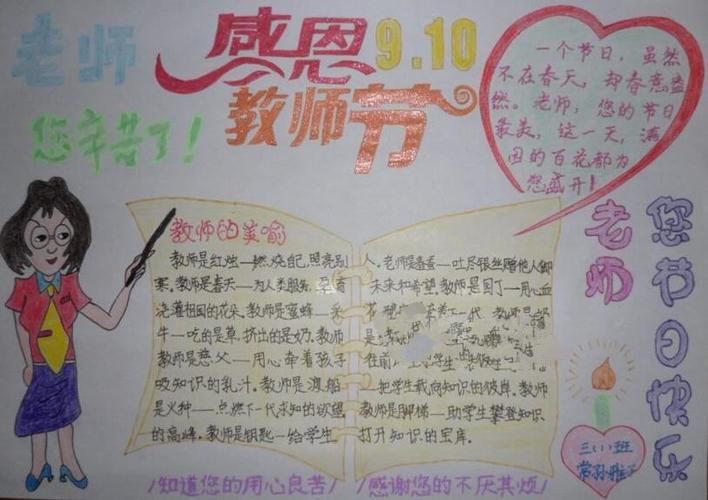 老师
感恩 9.10
教师节
您辛苦了！
一个节日，虽然
不在春天，却春意盎
然。老师，您的节日
最美，这一天，满
园的百花都为
您盛开！
老师
您节日快乐
教师的美喻
教师是红烛——燃烧自己,照亮别
人。老师是春蚕——吐尽银丝赠他人御
寒。教师是春天——为人类服务,孕育
未来和希望.教师是园丁——用心血
浇灌祖国的花朵.教师是蜜蜂——采
花 下一代.教师是奶
牛——吃的是草,挤出的是奶.教师
是
教师是慈父——用心牵着孩子
往前
吸知识的乳汁。教师是渡船
——把学生载向知识的彼岸。教师
是火种——点燃下一代求知的欲望
教师是脚梯——助学生攀登知识
的高峰.教师是钥匙——给学生
打开知识的宝库.
三(1)班
常孙雅
/知道您的用心良苦/
/感谢您的不厌其烦/